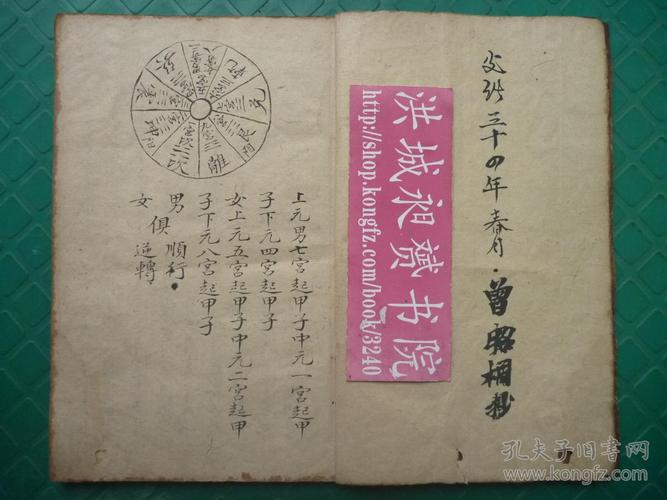 三十四年春月·曾昭
洪城昶赟书院
http://shop.kongfz.com/book/3240
乾
兌
艮
離
九宮
坎
坤
震
巽
上元男七宮起甲子中元一宮起甲
子下元四宮起甲子
女上元五宮起甲子中元二宮起甲
子下元八宮起甲子
男順行
俱
女逆轉
孔夫子旧书网
www.kongfz.com